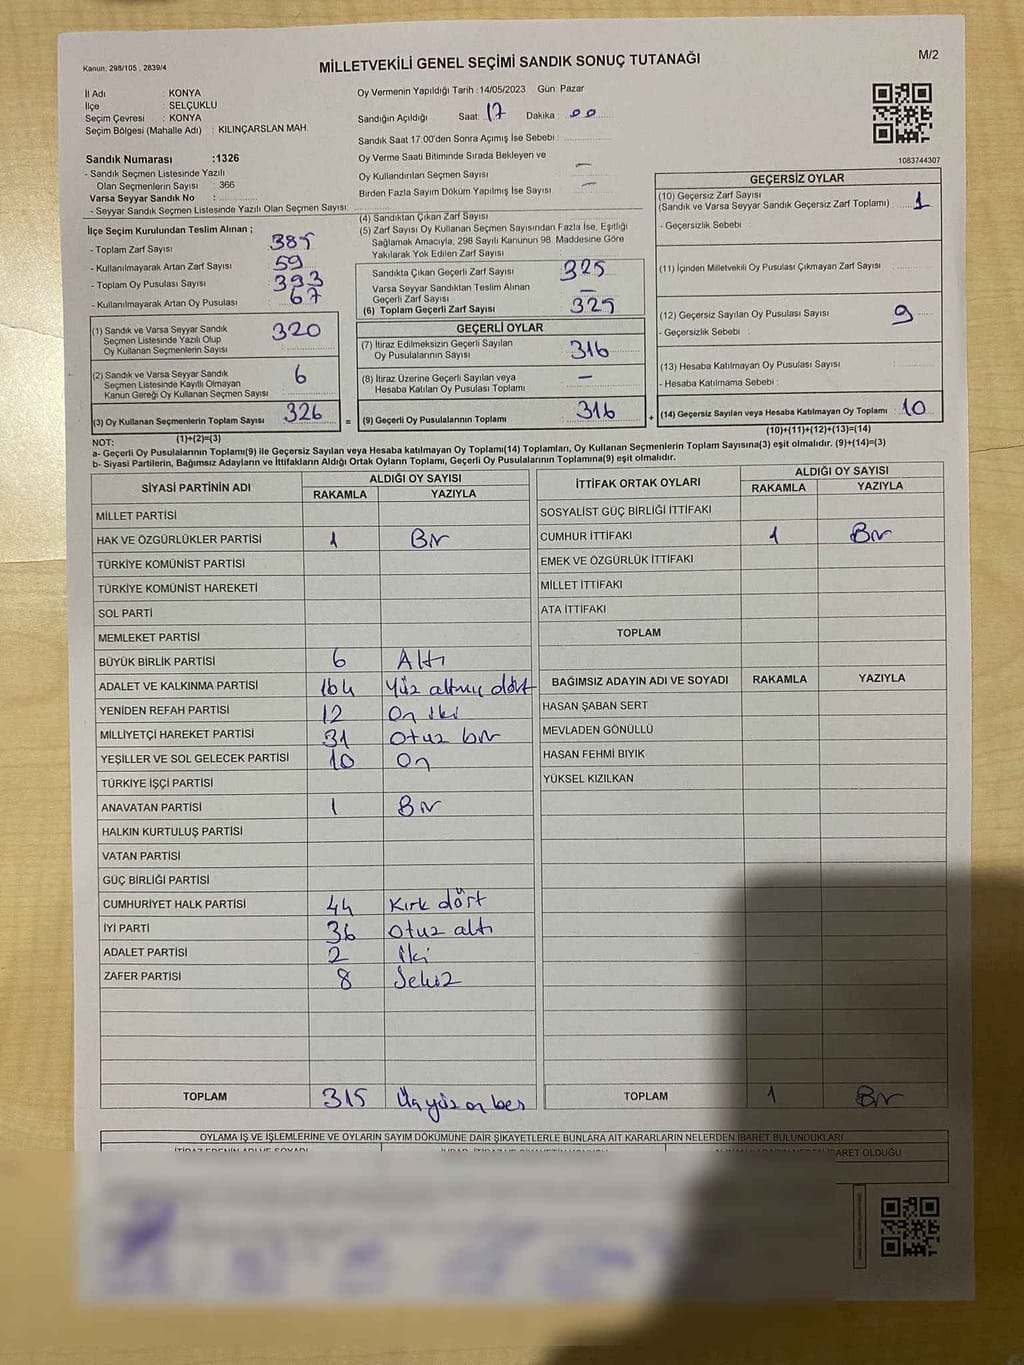 Kanun; 298/105 , 2839/4
MİLLETVEKİLİ GENEL SEÇİMİ SANDIK SONUÇ TUTANAĞI
M/2
İl Adı : KONYA
İlçe : SELÇUKLU
Seçim Çevresi : KONYA
Seçim Bölgesi (Mahalle Adı) : KILINÇARSLAN MAH.
Sandık Numarası :1326
- Sandık Seçmen Listesinde Yazılı
Olan Seçmenlerin Sayısı : 366
Varsa Seyyar Sandık No :
- Seyyar Sandık Seçmen Listesinde Yazılı Olan Seçmen Sayısı:
Oy Vermenin Yapıldığı Tarih :14/05/2023 Gün: Pazar
Sandığın Açıldığı Saat: 17 Dakika 00
Sandık Saat 17.00'den Sonra Açımış İse Sebebi :
Oy Verme Saati Bitiminde Sırada Bekleyen ve
Oy Kullandırılan Seçmen Sayısı —
Birden Fazla Sayım Döküm Yapılmış İse Sayısı —
1083744307
İlçe Seçim Kurulundan Teslim Alınan ;
- Toplam Zarf Sayısı 385
- Kullanılmayarak Artan Zarf Sayısı 59
- Toplam Oy Pusulası Sayısı 393
- Kullanılmayarak Artan Oy Pusulası 67
(1) Sandık ve Varsa Seyyar Sandık
Seçmen Listesinde Yazılı Olup
Oy Kullanan Seçmenlerin Sayısı 320
(2) Sandık ve Varsa Seyyar Sandık
Seçmen Listesinde Kayıtlı Olmayan
Kanun Gereği Oy Kullanan Seçmen Sayısı 6
(3) Oy Kullanan Seçmenlerin Toplam Sayısı 326
(1)+(2)=(3)
(4) Sandıktan Çıkan Zarf Sayısı
(5) Zarf Sayısı Oy Kullanan Seçmen Sayısından Fazla İse, Eşitliği
Sağlamak Amacıyla; 298 Sayılı Kanunun 98. Maddesine Göre
Yakılarak Yok Edilen Zarf Sayısı
Sandıkta Çıkan Geçerli Zarf Sayısı 325
Varsa Seyyar Sandıktan Teslim Alınan
Geçerli Zarf Sayısı —
(6) Toplam Geçerli Zarf Sayısı 325
GEÇERLİ OYLAR
(7) İtiraz Edilmeksizin Geçerli Sayılan
Oy Pusulalarının Sayısı 316
(8) İtiraz Üzerine Geçerli Sayılan veya
Hesaba Katılan Oy Pusulası Toplamı —
= (9) Geçerli Oy Pusulalarının Toplamı 316
GEÇERSİZ OYLAR
(10) Geçersiz Zarf Sayısı
(Sandık ve Varsa Seyyar Sandık Geçersiz Zarf Toplamı) 1
- Geçersizlik Sebebi :
(11) İçinden Milletvekili Oy Pusulası Çıkmayan Zarf Sayısı
(12) Geçersiz Sayılan Oy Pusulası Sayısı 9
- Geçersizlik Sebebi :
(13) Hesaba Katılmayan Oy Pusulası Sayısı
- Hesaba Katılmama Sebebi :
+ (14) Geçersiz Sayılan veya Hesaba Katılmayan Oy Toplamı : 10
(10)+(11)+(12)+(13)=(14)
NOT:
a- Geçerli Oy Pusulalarının Toplamı(9) ile Geçersiz Sayılan veya Hesaba katılmayan Oy Toplamı(14) Toplamları, Oy Kullanan Seçmenlerin Toplam Sayısına(3) eşit olmalıdır. (9)+(14)=(3)
b- Siyasi Partilerin, Bağımsız Adayların ve İttifakların Aldığı Ortak Oyların Toplamı, Geçerli Oy Pusulalarının Toplamına(9) eşit olmalıdır.
SİYASİ PARTİNİN ADI ALDIĞI OY SAYISI
RAKAMLA YAZIYLA
MİLLET PARTİSİ
HAK VE ÖZGÜRLÜKLER PARTİSİ 1 Bir
TÜRKİYE KOMÜNİST PARTİSİ
TÜRKİYE KOMÜNİST HAREKETİ
SOL PARTİ
MEMLEKET PARTİSİ
BÜYÜK BİRLİK PARTİSİ 6 Altı
ADALET VE KALKINMA PARTİSİ 164 Yüz altmış dört
YENİDEN REFAH PARTİSİ 12 On iki
MİLLİYETÇİ HAREKET PARTİSİ 31 Otuz bir
YEŞİLLER VE SOL GELECEK PARTİSİ 10 On
TÜRKİYE İŞÇİ PARTİSİ
ANAVATAN PARTİSİ 1 Bir
HALKIN KURTULUŞ PARTİSİ
VATAN PARTİSİ
GÜÇ BİRLİĞİ PARTİSİ
CUMHURİYET HALK PARTİSİ 44 Kırk dört
İYİ PARTİ 36 Otuz altı
ADALET PARTİSİ 2 İki
ZAFER PARTİSİ 8 Sekiz
TOPLAM 315 Üçyüz on beş
İTTİFAK ORTAK OYLARI ALDIĞI OY SAYISI
RAKAMLA YAZIYLA
SOSYALİST GÜÇ BİRLİĞİ İTTİFAKI
CUMHUR İTTİFAKI 1 Bir
EMEK VE ÖZGÜRLÜK İTTİFAKI
MİLLET İTTİFAKI
ATA İTTİFAKI
TOPLAM
BAĞIMSIZ ADAYIN ADI VE SOYADI RAKAMLA YAZIYLA
HASAN ŞABAN SERT
MEVLADEN GÖNÜLLÜ
HASAN FEHMİ BIYIK
YÜKSEL KIZILKAN
TOPLAM 1 Bir
OYLAMA İŞ VE İŞLEMLERİNE VE OYLARIN SAYIM DÖKÜMÜNE DAİR ŞİKAYETLERLE BUNLARA AİT KARARLARIN NELERDEN İBARET BULUNDUKLARI